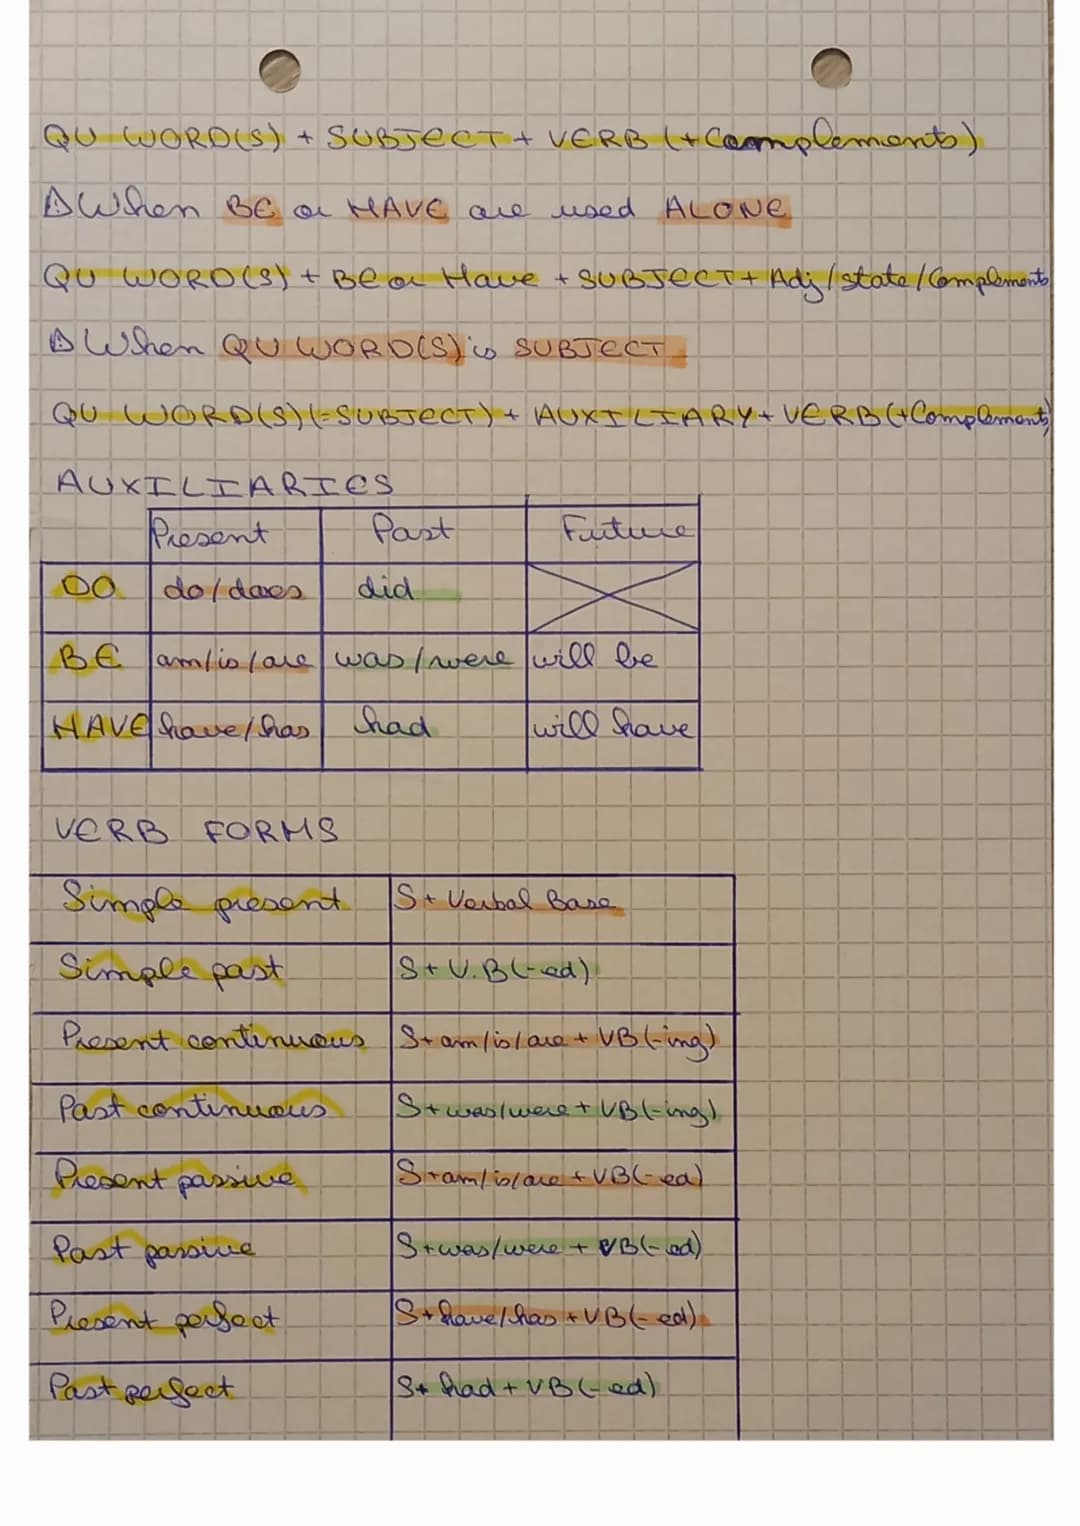 QU WORD(S) + SUBJECT + VERB (+ Complements)
⚠ When BE or HAVE are used ALONE
QU WORD(S) + BE or Have + SUBJECT + Adj/state/Complements
⚠ When QU WORD(S) is SUBJECT
QU WORD(S) (=SUBJECT) + AUXILIARY + VERB (+ Complements)
AUXILIARIES
Present Past Future
DO do/does did
BE am/is/are was/were will be
HAVE have/has had will have
VERB FORMS
Simple present S + Verbal Base
Simple past S + V.B (-ed)
Present continuous S + am/is/are + VB (-ing)
Past continuous S + was/were + VB (-ing)
Present passive S + am/is/are + VB (-ed)
Past passive S + was/were + VB (-ed)
Present perfect S + have/has + VB (-ed)
Past perfect S + had + VB (-ed)